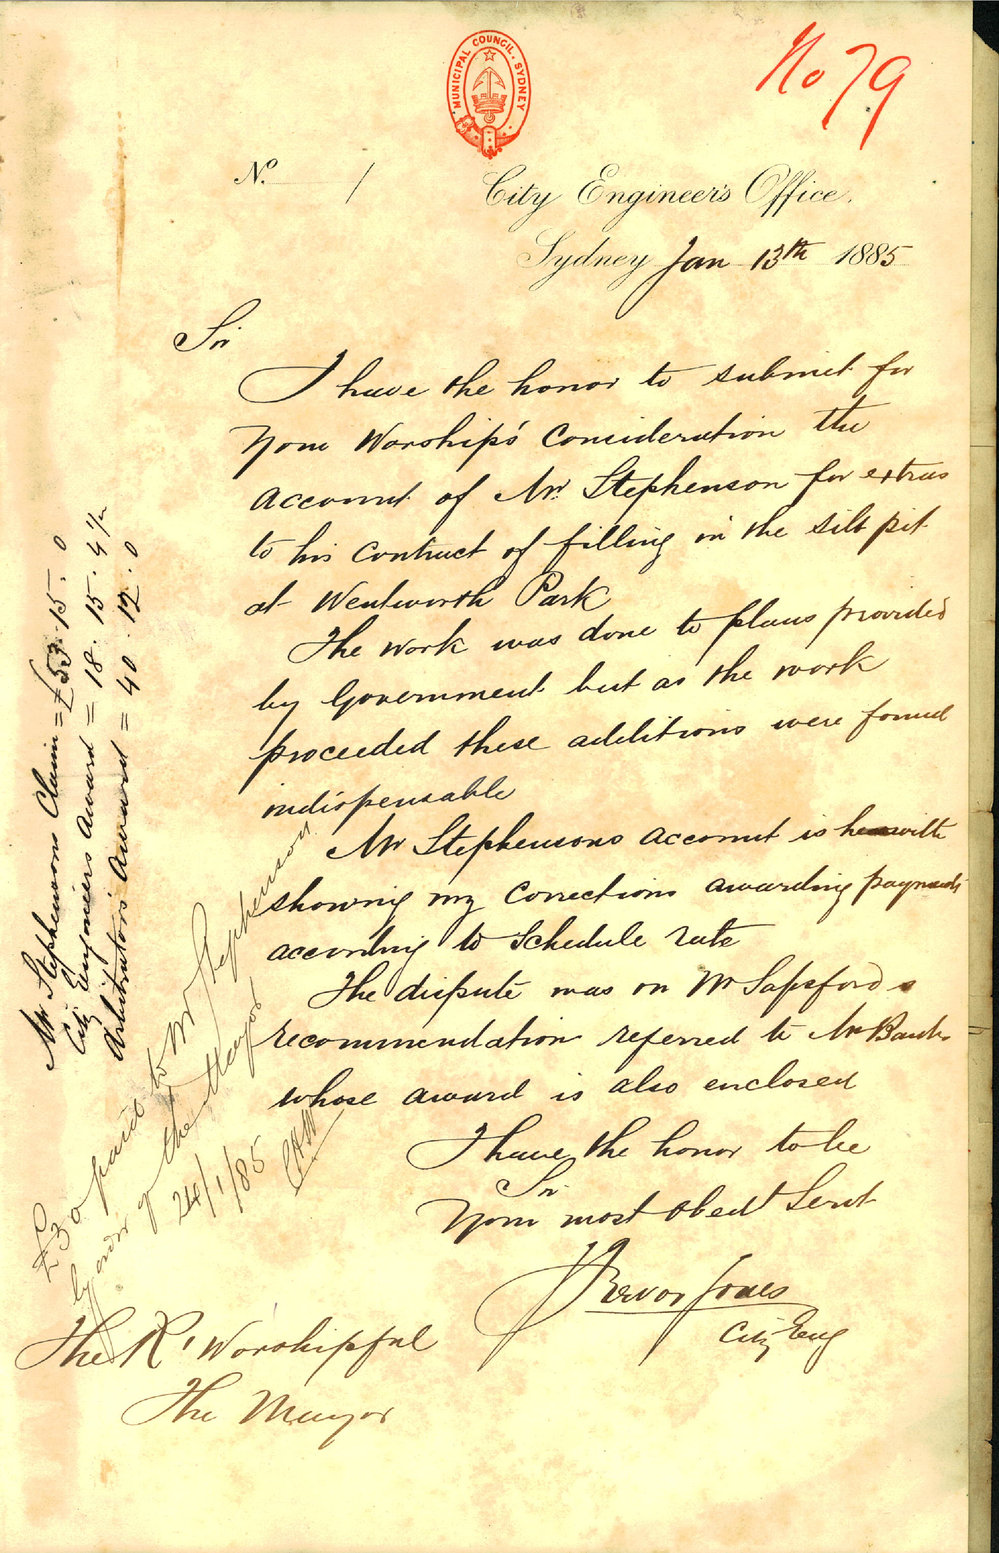 MUNICIPAL COUNCIL. SYDNEY
No 79
No. 1
City Engineer's Office.
Sydney Jan 13th 1885
Sir
I have the honor to submit for
Your Worship's Consideration the
account of Mr. Stephenson for extras
to his contract of filling in the silt pit
at Wentworth Park
The work was done to plans provided
by Government but as the work
proceeded these additions were found
indispensable
Mr Stephensons account is herewith
showing my corrections awarding payment
according to Schedule rate
The dispute was on Mr Sapsfords
recommendation referred to Mr
whose award is also enclosed
I have the honor to be
Sir
Your most obedt Servt
J Trevor Jones
City Eng
The Rt Worshipful
The Mayor
Mr Stephensons Claim = £53. 15. 0
City Engineers Award = 18. 15. 4 1/2
Arbitrator's Award = 40. 12. 0
£30 paid to Mr Stephenson
by order of the Mayor
24/1/85